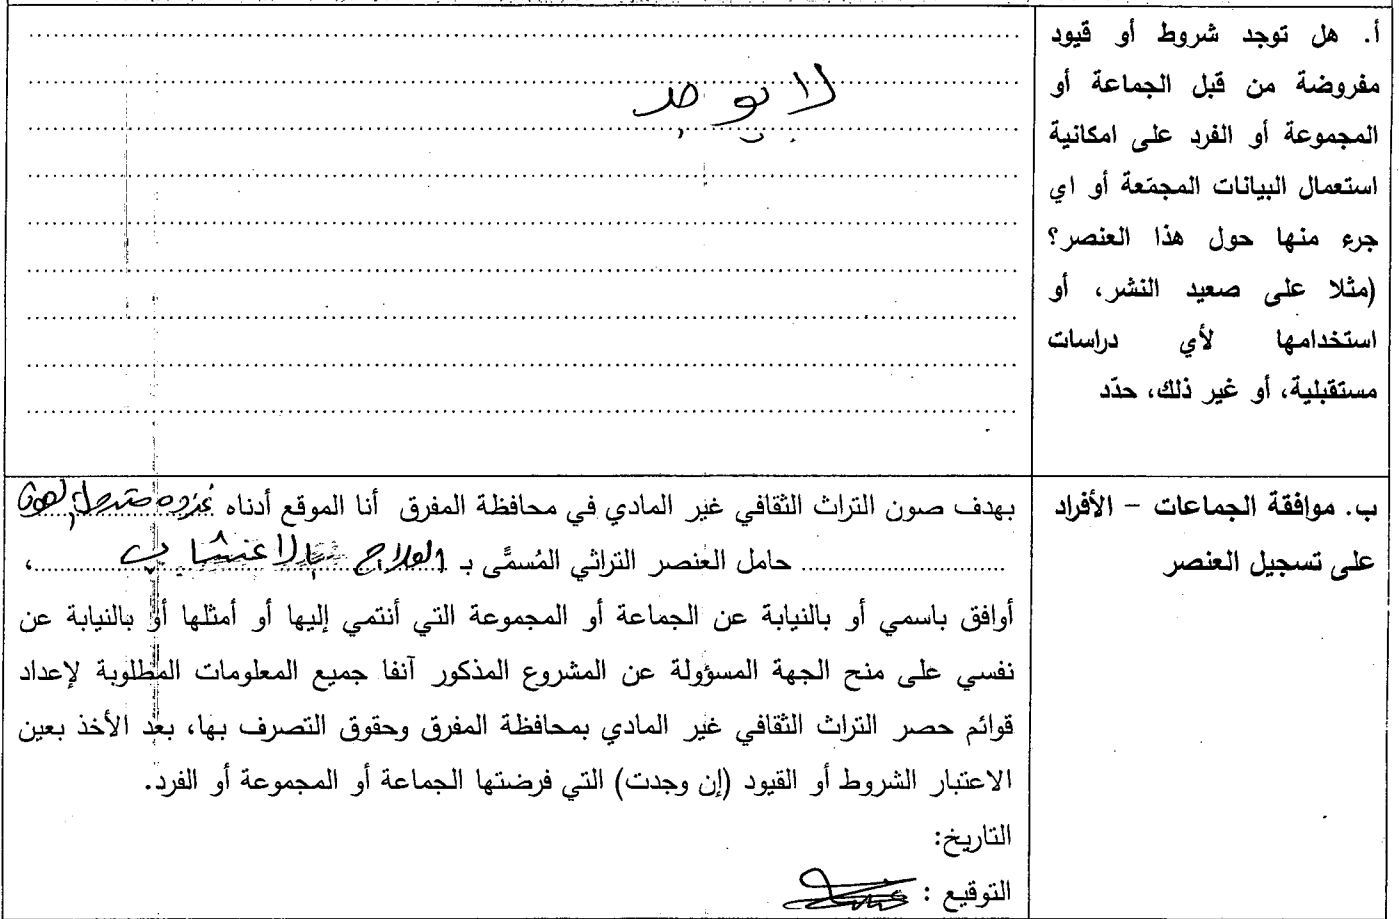 أ. هل توجد شروط أو قيود
مفروضة من قبل الجماعة أو
المجموعة أو الفرد على امكانية
استعمال البيانات المجمّعة أو اي
جرء منها حول هذا العنصر؟
(مثلا على صعيد النشر، أو
استخدامها لأي دراسات
مستقبلية، أو غير ذلك، حدّد
لا يوجد
ب. موافقة الجماعات – الأفراد
على تسجيل العنصر
بهدف صون التراث الثقافي غير المادي في محافظة المفرق أنا الموقع أدناه
حامل العنصر التراثي المُسمَّى بـ العلاج بالاعشاب ،
أوافق باسمي أو بالنيابة عن الجماعة أو المجموعة التي أنتمي إليها أو أمثلها أو بالنيابة عن
نفسي على منح الجهة المسؤولة عن المشروع المذكور آنفا جميع المعلومات المطلوبة لإعداد
قوائم حصر التراث الثقافي غير المادي بمحافظة المفرق وحقوق التصرف بها، بعد الأخذ بعين
الاعتبار الشروط أو القيود (إن وجدت) التي فرضتها الجماعة أو المجموعة أو الفرد.
التاريخ:
التوقيع :